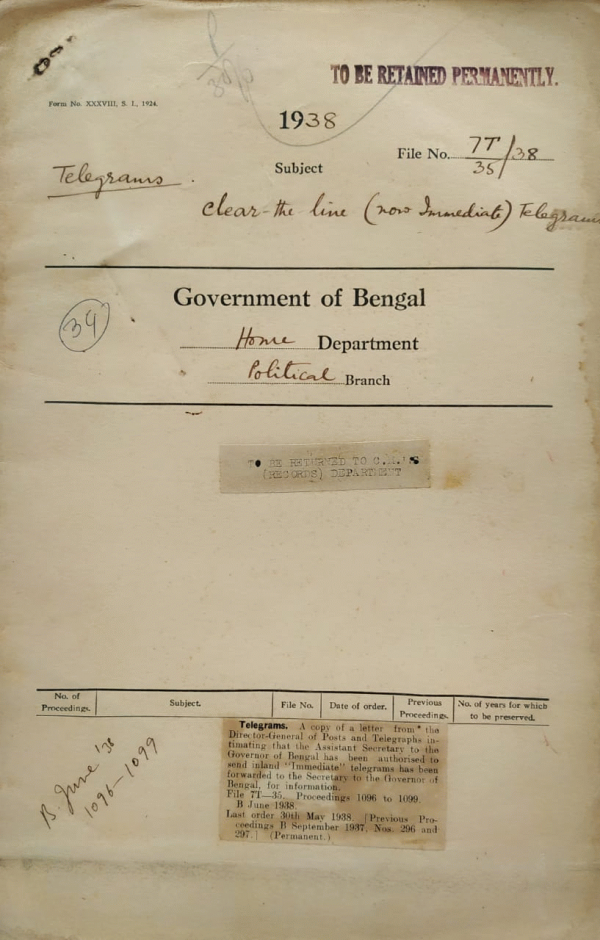 TO BE RETAINED PERMANENTLY.
Form No. XXXVIII, S. I., 1924.
1938
File No. 7T/35/38
Subject
Telegrams.
Clear-the line (now Immediate) Telegrams
Government of Bengal
34
Home Department
Political Branch
TO BE RETURNED TO
(RECORDS) DEPARTMENT
No. of Proceedings. Subject. File No. Date of order. Previous Proceedings. No. of years for which to be preserved.
B June '38
1096-1099
Telegrams. A copy of a letter from the
Director-General of Posts and Telegraphs in-
timating that the Assistant Secretary to the
Governor of Bengal has been authorised to
send inland "Immediate" telegrams has been
forwarded to the Secretary to the Governor of
Bengal, for information.
File 7T—35. Proceedings 1096 to 1099.
B June 1938.
Last order 30th May 1938. [Previous Pro-
ceedings B September 1937, Nos. 296 and
297.] (Permanent.)